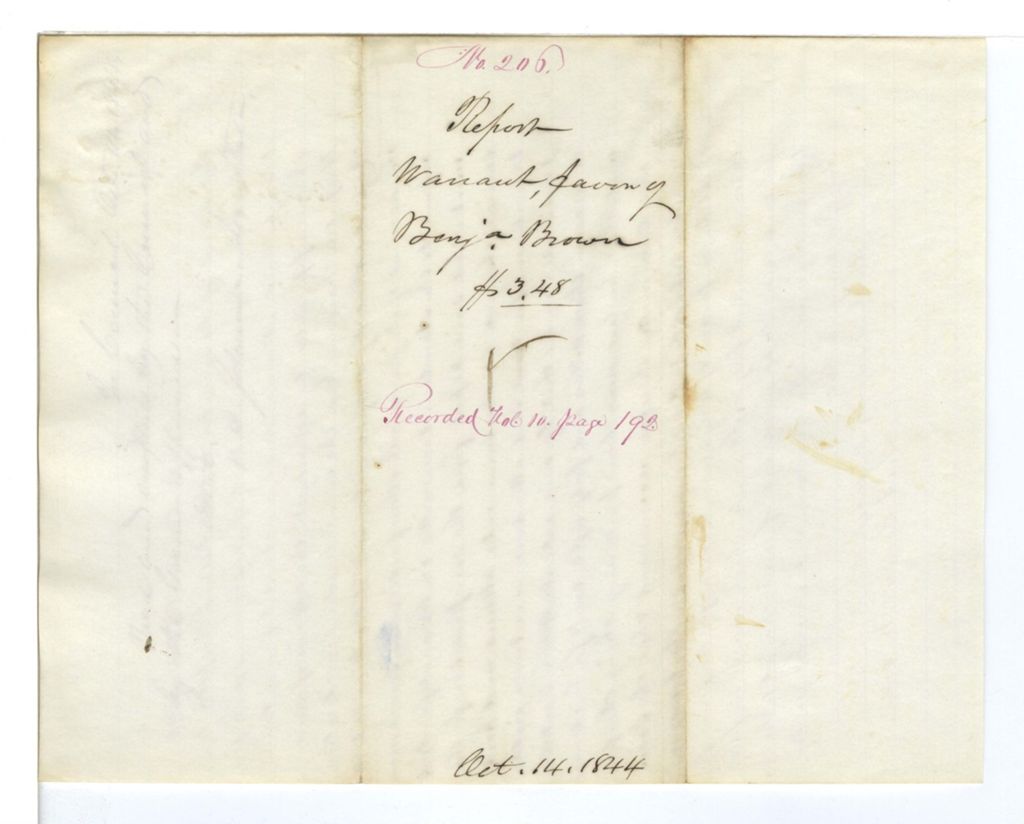 No. 206.
Report
Warrant, favor of
Benja. Brown
$3.48
Recorded Vol 10. page 192
Oct. 14. 1844